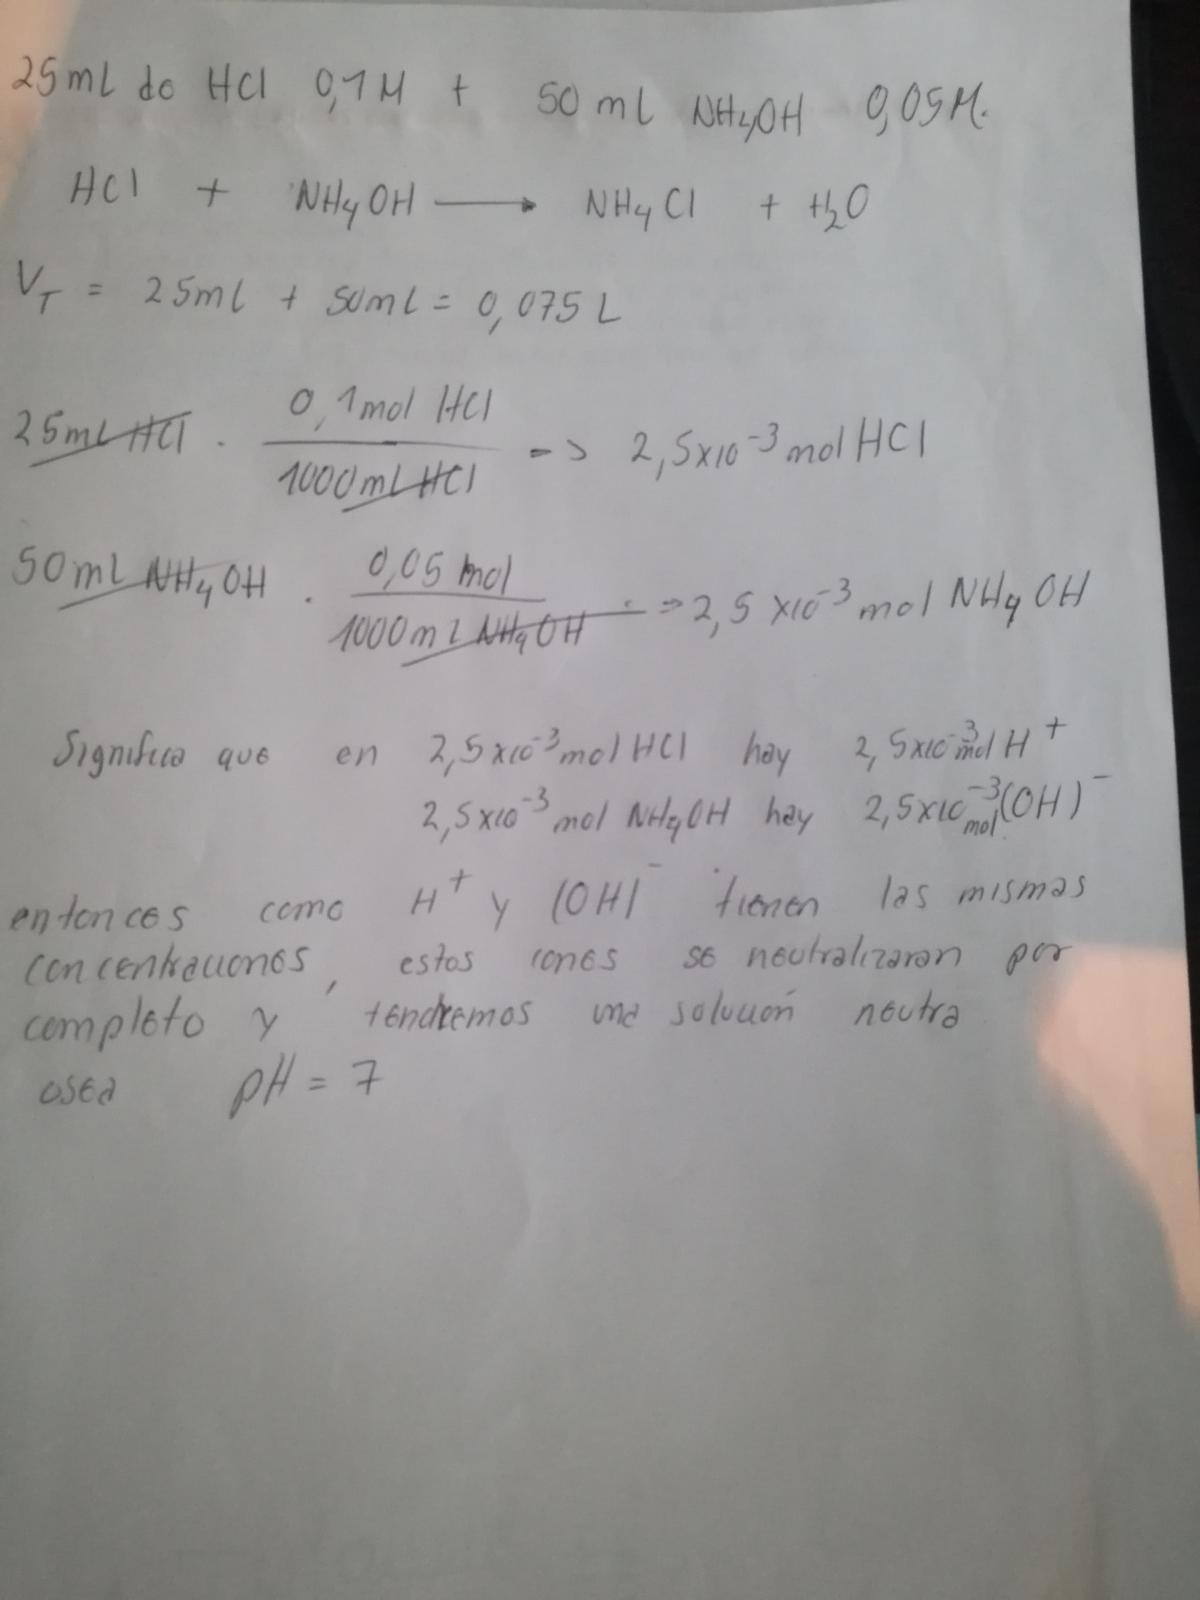 25mL de HCl 0,1M + 50 mL NH4OH 0,05M.
HCl + NH4OH → NH4Cl + H2O
VT = 25mL + 50mL = 0,075 L
25mL HCl . 0,1mol HCl / 1000mL HCl => 2,5x10^-3 mol HCl
50mL NH4OH . 0,05 mol / 1000mL NH4OH => 2,5 x10^-3 mol NH4OH
Significa que en 2,5x10^-3 mol HCl hay 2,5x10^-3 mol H+
2,5x10^-3 mol NH4OH hay 2,5x10^-3 mol (OH)-
entonces como H+ y (OH)- tienen las mismas
concentraciones, estos iones se neutralizaran por
completo y tendremos una solución neutra
osea pH = 7